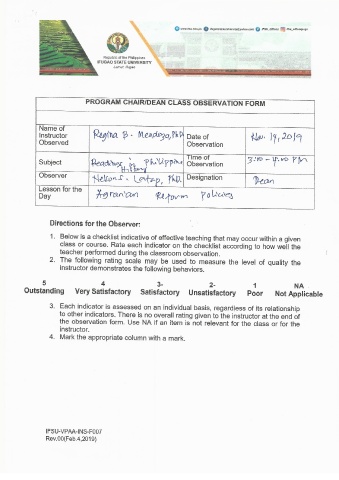 Republic of the Philippines
IFUGAO STATE UNIVERSITY
PROGRAM CHAIR/DEAN CLASS OBSERVATION FORM
Name of Instructor Observed
Regina B. Mendoza, PhD
Date of Observation
Nov. 19, 2019
Subject
Readings in Philippine History
Time of Observation
3:00 - 4:00 PM
Observer
PhD.
Designation
Dean
Lesson for the Day
Agrarian Reform Policies
Directions for the Observer:
1. Below is a checklist indicative of effective teaching that may occur within a given
class or course. Rate each indicator on the checklist according to how well the
teacher performed during the classroom observation.
2. The following rating scale may be used to measure the level of quality the
instructor demonstrates the following behaviors.
5 4 3- 2- 1 NA
Outstanding Very Satisfactory Satisfactory Unsatisfactory Poor Not Applicable
3. Each indicator is assessed on an individual basis, regardless of its relationship
to other indicators. There is no overall rating given to the instructor at the end of
the observation form. Use NA if an item is not relevant for the class or for the
instructor.
4. Mark the appropriate column with a mark.
IFSU-VPAA-INS-F007
Rev.00(Feb.4,2019)